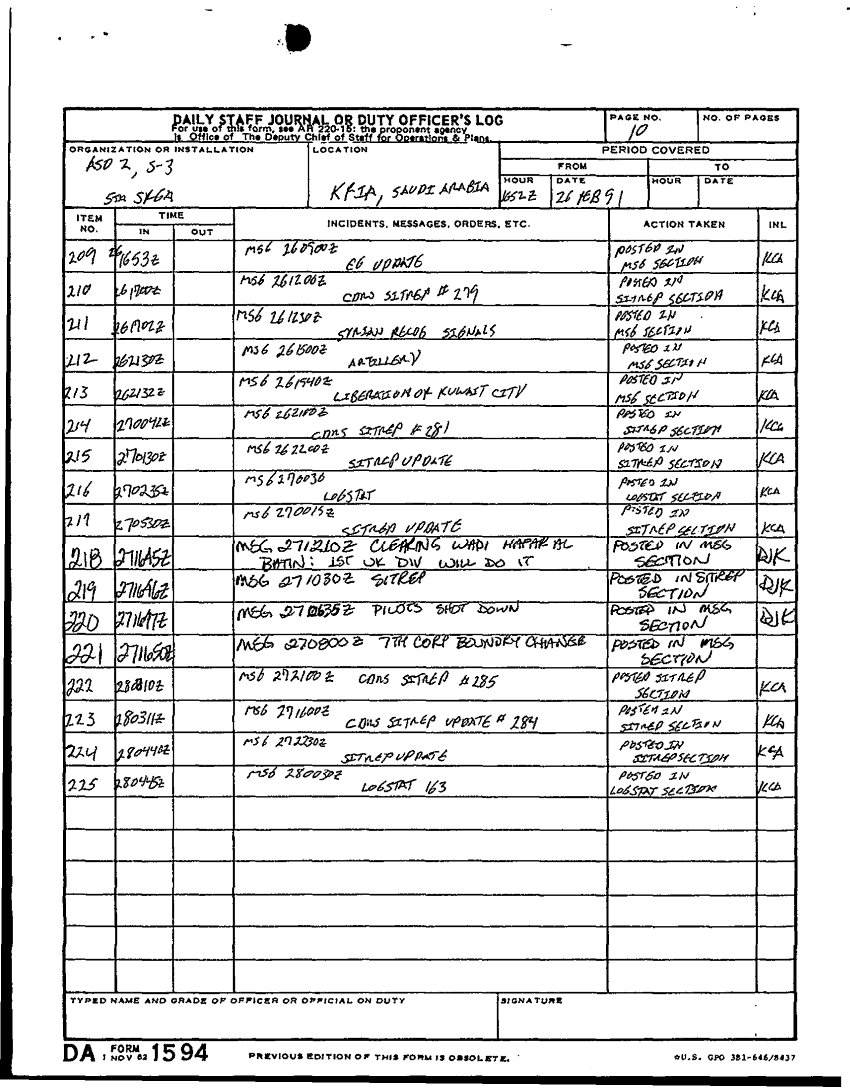 DAILY STAFF JOURNAL OR DUTY OFFICER'S LOG
For use of this form, see AR 220-15: the proponent agency
is Office of The Deputy Chief of Staff for Operations & Plans.
PAGE NO.
10
NO. OF PAGES
ORGANIZATION OR INSTALLATION
ASD 2, S-3
LOCATION
KFIA, SAUDI ARABIA
PERIOD COVERED
FROM
TO
HOUR
1652Z
DATE
26 FEB 91
HOUR
DATE
ITEM NO.
TIME
IN
OUT
INCIDENTS, MESSAGES, ORDERS, ETC.
ACTION TAKEN
INL
209 261653Z MSG 260900Z POSTED IN
EG UPDATE MSG SECTION KCA
210 261700Z MSG 261200Z POSTED IN
CDRS SITREP # 279 SITREP SECTION KCA
211 261702Z MSG 261230Z POSTED IN
SYRIAN RECOG SIGNALS MSG SECTION KCA
212 262130Z MSG 261500Z POSTED IN
ARTILLERY MSG SECTION KCA
213 262132Z MSG 261540Z POSTED IN
LIBERATION OF KUWAIT CITY MSG SECTION KCA
214 270042Z MSG 262100Z POSTED IN
CDRS SITREP # 281 SITREP SECTION KCA
215 270130Z MSG 262200Z POSTED IN
SITREP UPDATE SITREP SECTION KCA
216 270235Z MSG 270030 POSTED IN
LOGSTAT LOGSTAT SECTION KCA
217 270530Z MSG 270015Z POSTED IN
SITREP UPDATE SITREP SECTION KCA
218 271645Z MSG 271210Z CLEARING WADI HAFAR AL POSTED IN MSG
BATIN: 1ST UK DIV WILL DO IT SECTION DJK
219 271646Z MSG 271030Z SITREP POSTED IN SITREP
SECTION DJK
220 271647Z MSG 270635Z PILOTS SHOT DOWN POSTED IN MSG
SECTION DJK
221 271650Z MSG 270800Z 7TH CORP BOUNDRY CHANGE POSTED IN MSG
SECTION
222 MSG 272100Z CDRS SITREP # 285 POSTED SITREP
SECTION KCA
223 280311Z MSG 271600Z POSTED IN
CDRS SITREP UPDATE # 284 SITREP SECTION KCA
224 280440Z MSG 272230Z POSTED IN
SITREP UPDATE SITREP SECTION KCA
225 280445Z MSG 280030Z POSTED IN
LOGSTAT 163 LOGSTAT SECTION KCA
TYPED NAME AND GRADE OF OFFICER OR OFFICIAL ON DUTY
SIGNATURE
DA FORM 1 NOV 62 1594
PREVIOUS EDITION OF THIS FORM IS OBSOLETE.
☆U.S. GPO 381-646/8437